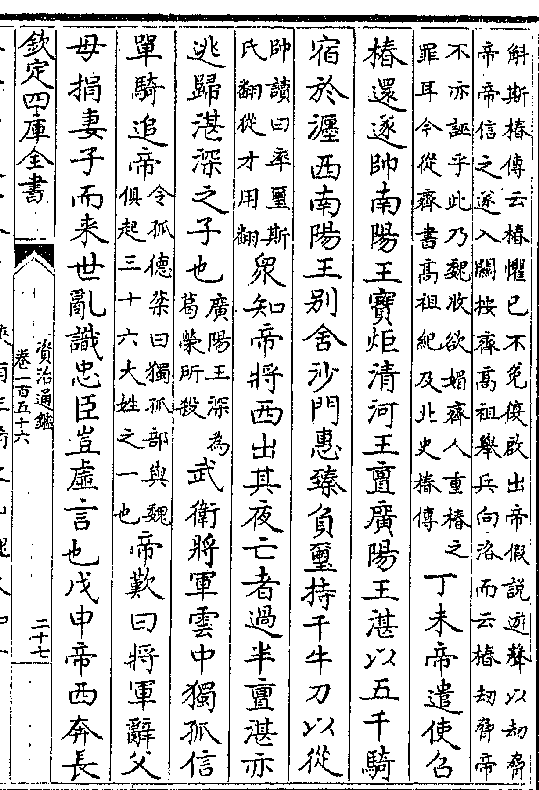 斛斯椿傳云椿懼已不免復啟出帝假說遊聲以劫脅
帝帝信之遂入關按齊高祖舉兵向洛而云椿劫脅帝
不亦誣乎此乃魏收欲媚齊人重椿之
罪耳今從齊書高祖紀及北史椿傳
丁未帝遣使召
椿還遂帥南陽王寶炬清河王亶廣陽王湛以五千騎
宿於瀍西南陽王別舍沙門惠臻負璽持千牛刀以從
帥讀曰率璽斯
氏翻從才用翻
衆知帝將西出其夜亡者過半亶湛亦
逃歸湛深之子也
廣陽王深為
葛榮所殺
武衛將軍雲中獨孤信
單騎追帝
令狐德棻曰獨孤部與魏
俱起三十六大姓之一也
帝歎曰將軍辭父
母捐妻子而来世亂識忠臣豈虛言也戊申帝西奔長
欽定四庫全書
資治通鑑
卷一百五十六
二十七